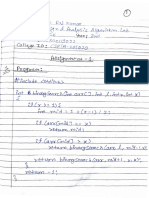 Raj Kumar
Design & Analysis Algorithm Lab
College ID:
Assignment - 1
Program:
#include <iostream>
int BinarySearch (int arr[], int l, int r, int x)
{
if (r >= l) {
int mid = l + (r - l) / 2;
if (arr[mid] == x)
return mid;
if (arr[mid] > x)
return binarySearch (arr, l, mid-1, x);
return binarySearch (arr, mid+1, r, x);
}
return -1;